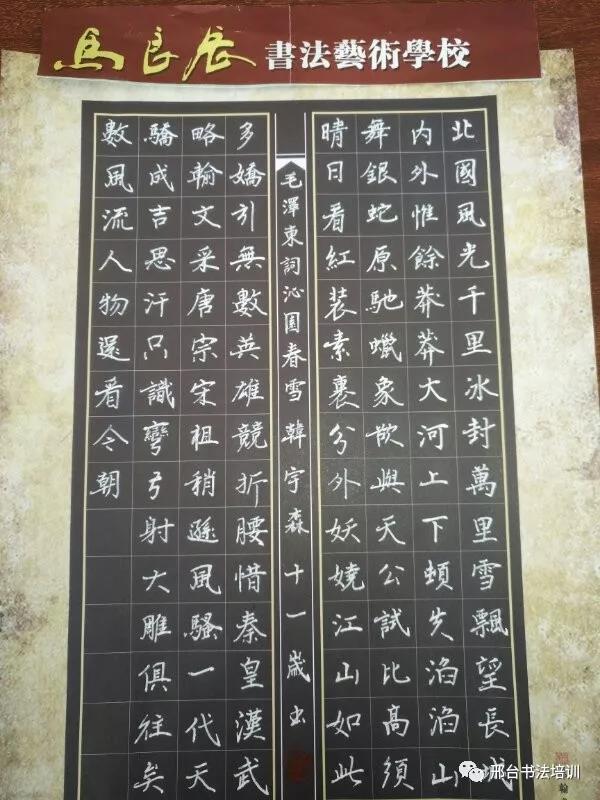 馬良辰 書法藝術學校
北國風光千里冰封萬里雪飄望長城
內外惟餘莽莽大河上下頓失滔滔山
舞銀蛇原馳蠟象欲與天公試比高須
晴日看紅裝素裹分外妖嬈江山如此
毛澤東詞沁園春雪 韓宇森 十一歲書
多嬌引無數英雄競折腰惜秦皇漢武
略輸文采唐宗宋祖稍遜風騷一代天
驕成吉思汗只識彎弓射大雕俱往矣
數風流人物還看今朝
翰
邢台书法培训